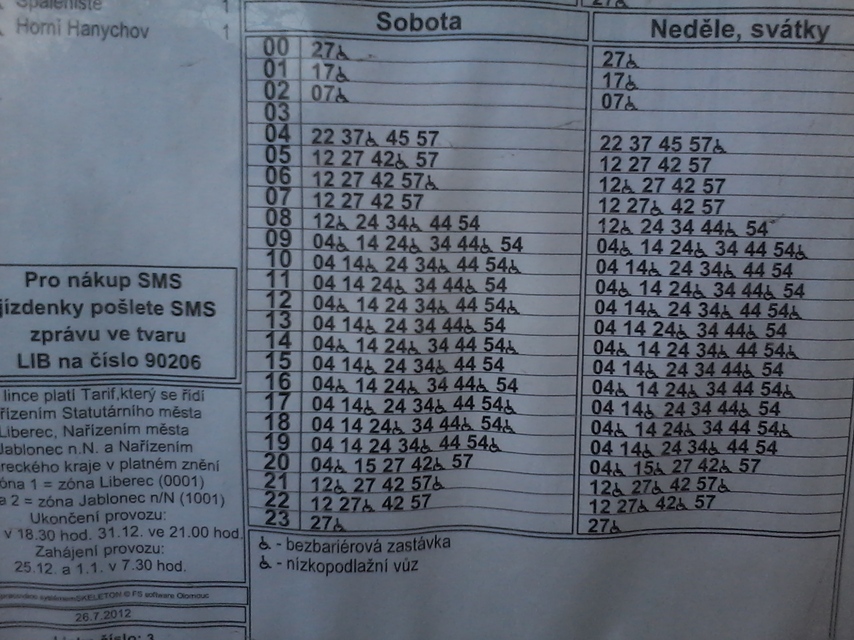 Horní Hanychov 1
Pro nákup SMS
jízdenky pošlete SMS
zprávu ve tvaru
LIB na číslo 90206
lince platí Tarif,který se řídí
Statutárního města
Liberec, Nařízením města
Jablonec n.N. a Nařízením
kraje v platném znění
1 = zóna Liberec (0001)
a 2 = zóna Jablonec n/N (1001)
Ukončení provozu:
v 18.30 hod. 31.12. ve 21.00 hod.
Zahájení provozu:
25.12. a 1.1. v 7.30 hod.
SKELETON © FS software Olomouc
26.7.2012
číslo: 3
Sobota Neděle, svátky
00 27♿ 27♿
01 17♿ 17♿
02 07♿ 07♿
03
04 22 37♿ 45 57 22 37 45 57♿
05 12 27 42♿ 57 12 27 42 57
06 12 27 42 57♿ 12♿ 27 42 57
07 12 27 42 57 12 27♿ 42 57
08 12♿ 24 34♿ 44 54 12♿ 24 34 44♿ 54
09 04♿ 14 24♿ 34 44♿ 54 04♿ 14 24♿ 34 44 54♿
10 04 14♿ 24 34♿ 44 54♿ 04 14♿ 24 34♿ 44 54
11 04 14 24♿ 34 44♿ 54 04♿ 14 24♿ 34 44♿ 54
12 04♿ 14 24♿ 34 44 54♿ 04 14♿ 24 34♿ 44 54♿
13 04 14♿ 24 34 44♿ 54 04 14 24♿ 34 44♿ 54
14 04♿ 14 24♿ 34 44 54♿ 04♿ 14 24♿ 34 44 54♿
15 04 14♿ 24 34♿ 44 54 04 14♿ 24 34 44♿ 54
16 04 14 24♿ 34 44♿ 54 04♿ 14 24♿ 34 44 54♿
17 04 14♿ 24 34♿ 44 54♿ 04 14♿ 24 34 44♿ 54
18 04 14♿ 24 34 44♿ 54♿ 04♿ 14 24♿ 34 44 54♿
19 04 14 24 34♿ 44 54♿ 04 14♿ 24 34♿ 44 54
20 04♿ 15 27 42♿ 57 04♿ 15♿ 27 42♿ 57
21 12♿ 27 42 57♿ 12♿ 27♿ 42 57♿
22 12 27♿ 42 57 12 27♿ 42♿ 57
23 27♿ 27♿
♿ - bezbariérová zastávka
♿ - nízkopodlažní vůz